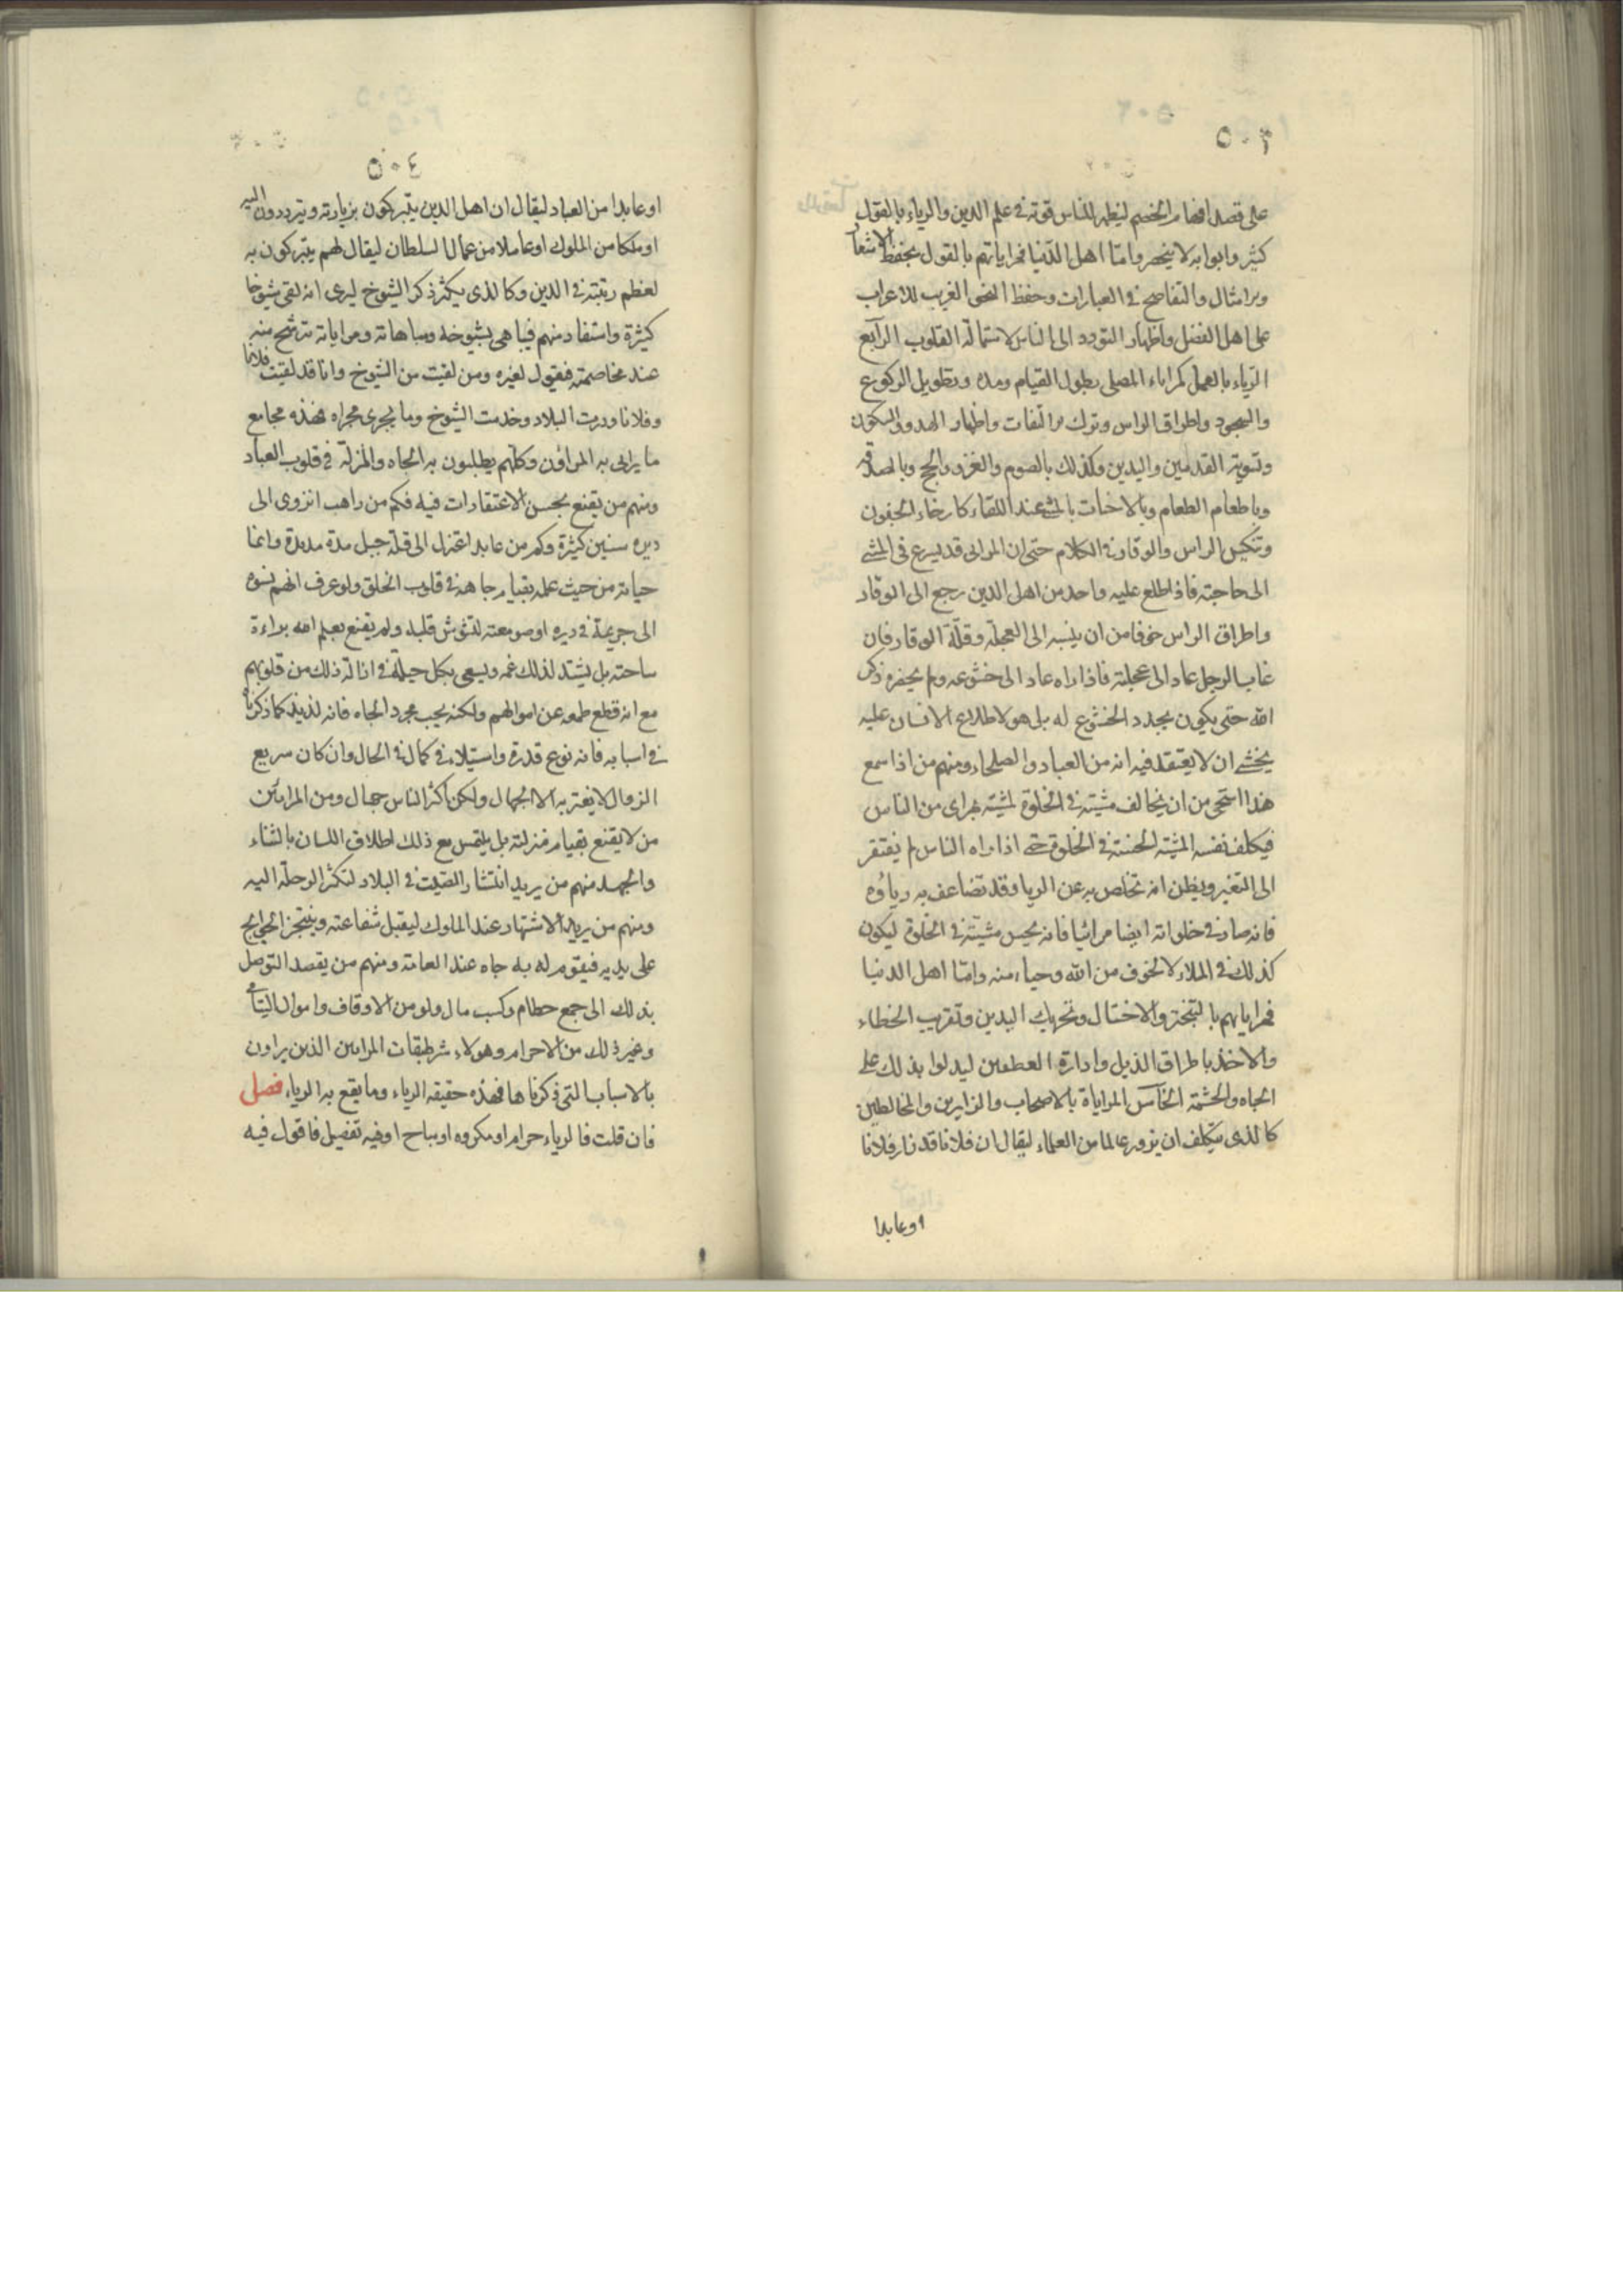 ٥٠٣
على قصد افحام الخصم ليظهر للناس قوته فى علم الدين والرياء بالقول
كثير وابوابه لا ينحصر وامّا اهل الدّنيا فمراياتهم بالقول بحفظ الاشعار
والامثال والتفاصح فى العبارات وحفظ النحو الغريب للاغراب
على اهل الفضل واظهار التودد الى الناس لاستمالة القلوب الرّابع
الرّياء بالعمل كمراياء المصلى بطول القيام ومده وبتطويل الركوع
والسجود واطراق الراس وترك الالتفات واظهار الهدوء والسكون
وتسوية القدمين واليدين وكذلك بالصوم والغزو والحج وبالصدقه
وباطعام الطعام وبالاخبات بالمشى عند اللقاء كارخاء الجفون
وتنكيس الراس والوقار فى الكلام حتى ان المرائى قد يسرع فى المشى
الى حاجته فاذا اطلع عليه واحد من اهل الدين رجع الى الوقار
واطراق الراس خوفا من ان ينسبه الى العجلة وقلّة الوقار فان
غاب الرجل عاد الى عجلته فاذا راه عاد الى خشوعه ولم يحضره ذكر
الله حتى يكون يجدد الخشوع له بل هو لاطلاع الانسان عليه
يخشى ان لا يعتقد فيه انه من العباد والصلحاء ومنهم من اذا سمع
هذا استحيى من ان يخالف مشيته فى الخلوة لمشيته بمراى من الناس
فيكلف نفسه المشية الحسنة فى الخلوة حتى اذا راه الناس لم يفتقر
الى التغير ويظن انه تخلص به عن الريا وقد تضاعف به رياؤه
فانه صار فى خلواته ايضا مرائيا فانه يحسن مشيته فى الخلوة ليكون
كذلك فى الملاء لا لخوف من الله وحياء منه وامّا اهل الدنيا
فمراياتهم بالتبختر والاختيال وتحريك اليدين وتقريب الخطاء
والاخذ باطراف الذيل وادارة العطفين ليدلوا بذلك على
الجاه والحشمة الخامس المراياة بالاصحاب والزايرين والمخالطين
كالذى يتكلف ان يزور عالما من العلماء ليقال ان فلانا قد زار فلانا
اوعابدا
٥٠٤
اوعابدا من العباد ليقال ان اهل الدين يتبركون بزيارته ويترددون اليه
او ملكا من الملوك او عاملا من عمال السلطان ليقال لهم يتبركون به
لعظم رتبته فى الدين وكالذى يكثر ذكر الشيوخ ليرى انه لقى شيوخا
كثيرة واستفاد منهم فيباهى بشيوخه ومباهاته ومراياته تترشح منه
عند مخاصمته فيقول لغيره ومن لقيت من الشيوخ وانا قد لقيت فلانا
وفلانا ودرت البلاد وخدمت الشيوخ وما يجرى مجراه فهذه مجامع
ما يرائى به المراؤن وكلهم يطلبون به الجاه والمنزلة فى قلوب العباد
ومنهم من يقنع بحسن الاعتقادات فيه فكم من راهب انزوى الى
ديره سنين كثيرة وكم من عابد اعتزل الى قلّة جبل مدة مديدة وانما
حياته من حيث علمه بقيام جاهه فى قلوب الخلق ولو عرف انهم نسبوه
الى جريمة فى ديره او صومعته لتشوش قلبه ولم يقنع بعلم الله براءة
ساحته بل يشتد لذلك غمه ويسعى بكل حيلة فى ازالة ذلك من قلوبهم
مع انه قطع طمعه عن اموالهم ولكنه يحب مجرد الجاه فانه لذيذ كما ذكرناه
فى اسبابه فانه نوع قدرة واستيلاء فى كمال فى الحال وان كان سريع
الزوال لا يغتر به الا الجهال ولكن اكثر الناس جهال ومن المرايئن
من لا يقنع بقيام منزلته بل يلتمس مع ذلك اطلاق اللسان بالثناء
والحمد ومنهم من يريد انتشار الصيت فى البلاد لتكثر الرحلة اليه
ومنهم من يريد الاشتهار عند الملوك ليقبل شفاعته وينتجز الحوايج
على يديه فيقوم له به جاه عند العامة ومنهم من يقصد التوصل
بذلك الى جمع حطام وكسب مال ولو من الاوقاف واموال اليتامى
وغير ذلك من الاحرام وهولاء شر طبقات المرايين الذين يراون
بالاسباب التى ذكرناها فهذه حقيقه الرياء وما يقع به الرياء فصل
فان قلت فالرياء حرام او مكروه او مباح او فيه تفصيل فاقول فيه